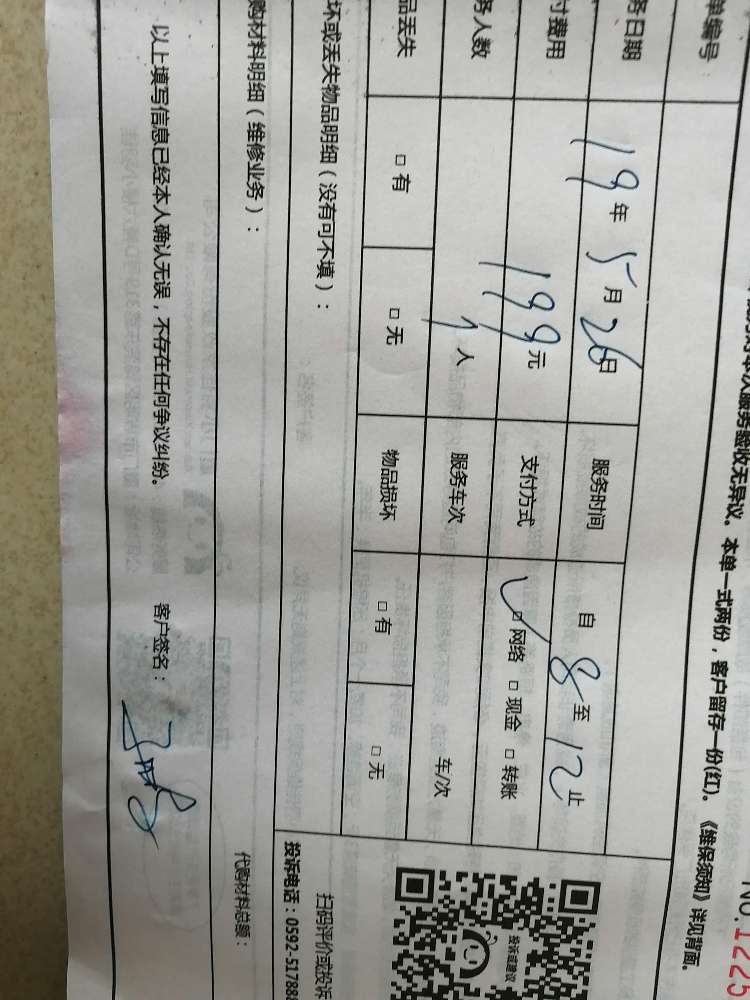 本次服务验收无异议。本单一式两份，客户留存一份(红)。《维保须知》详见背面。
NO.1225
单编号
务日期 19年5月26日 服务时间 自8至12止
付费用 199元 支付方式 ✓□网络 □现金 □转账
务人数 1人 服务车次 车/次
品丢失 □有 □无 物品损坏 □有 □无
坏或丢失物品明细（没有可不填）：
投诉或建议
扫码评价或投诉
投诉电话：0592-51788
购材料明细（维修业务）：
代购材料总额：
以上填写信息已经本人确认无误，不存在任何争议纠纷。 客户签名：